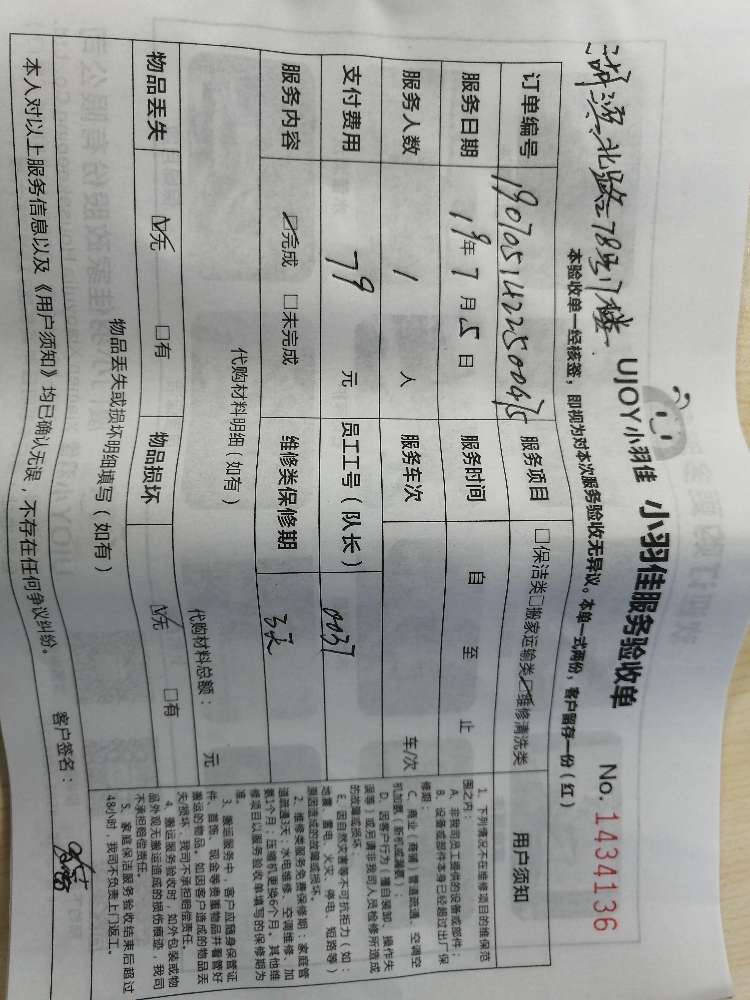 UJOY小羽佳 小羽佳服务验收单 No. 1434136
北路78号1楼
本验收单一经核签，即视为对本次服务验收无异议。本单一式两份，客户留存一份（红）
订单编号 服务项目 □保洁类□搬家运输类☑维修清洗类
服务日期 19年7月5日 服务时间 自 至 止
服务人数 1 人 服务车次 车/次
支付费用 79 元 员工工号（队长） 0037
服务内容 ☑完成 □未完成 维修类保修期 3天
代购材料明细（如有）
代购材料总额： 元
物品丢失 ☑无 □有 物品损坏 ☑无 □有
物品丢失或损坏明细填写（如有）
本人对以上服务信息以及《用户须知》均已确认无误，不存在任何争议纠纷。
客户签名：
用户须知
1、下列情况不在维修项目的维保范
围之内：
A、非我司员工提供的设备或部件；
B、设备或部件本身已经超过出厂保
修期；
C、商业（商铺）管道疏通、空调空
机加氟（新机或满氟）；
D、因客户行为（擅自装卸、操作失
误等）或另请非我司人员检修所造成
的故障或损坏；
E、因自然灾害等不可抗拒力（如：
地震、雷电、火灾、停电、短路等）
原因造成的故障或损坏。
2、维修类服务免费保修期：家庭管
道疏通3天；水电维修、空调维修、加
氟1个月；压缩机更换6个月。其他维
修项目以服务验收单填写的保修期为
准。
3、搬运服务中，客户应随身保管证
件、首饰、现金等贵重物品并看管好
搬运的物品。如因客户造成的物品丢
失/损坏，我司不承担赔偿责任。
4、搬运服务验收时，如外包装或物
品外观无搬运造成的损伤痕迹，我司
不承担赔偿责任。
5、家庭保洁服务验收结束后超过
48小时，我司不负责上门返工。